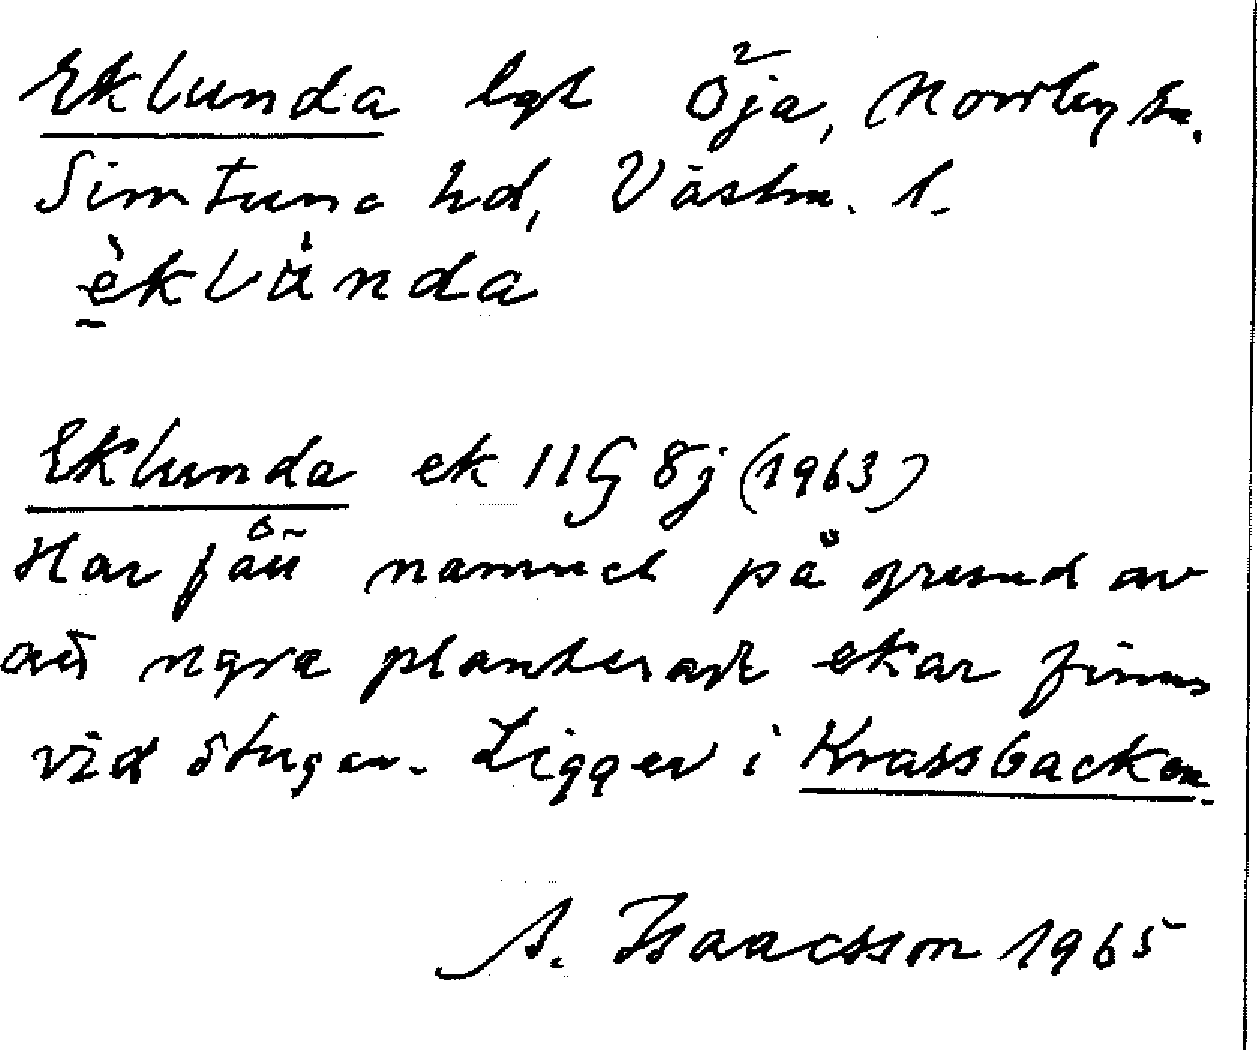 Eklunda lgt Öja, Norrby sn.
Simtuna hd, Västm. l.
èklùnda
Eklunda ek 11G 8j (1963)
Har fått namnet på grund av
att ngra planterade ekar finns
vid stugan. Ligger i Krassbacken.
A. Isaacsson 1965